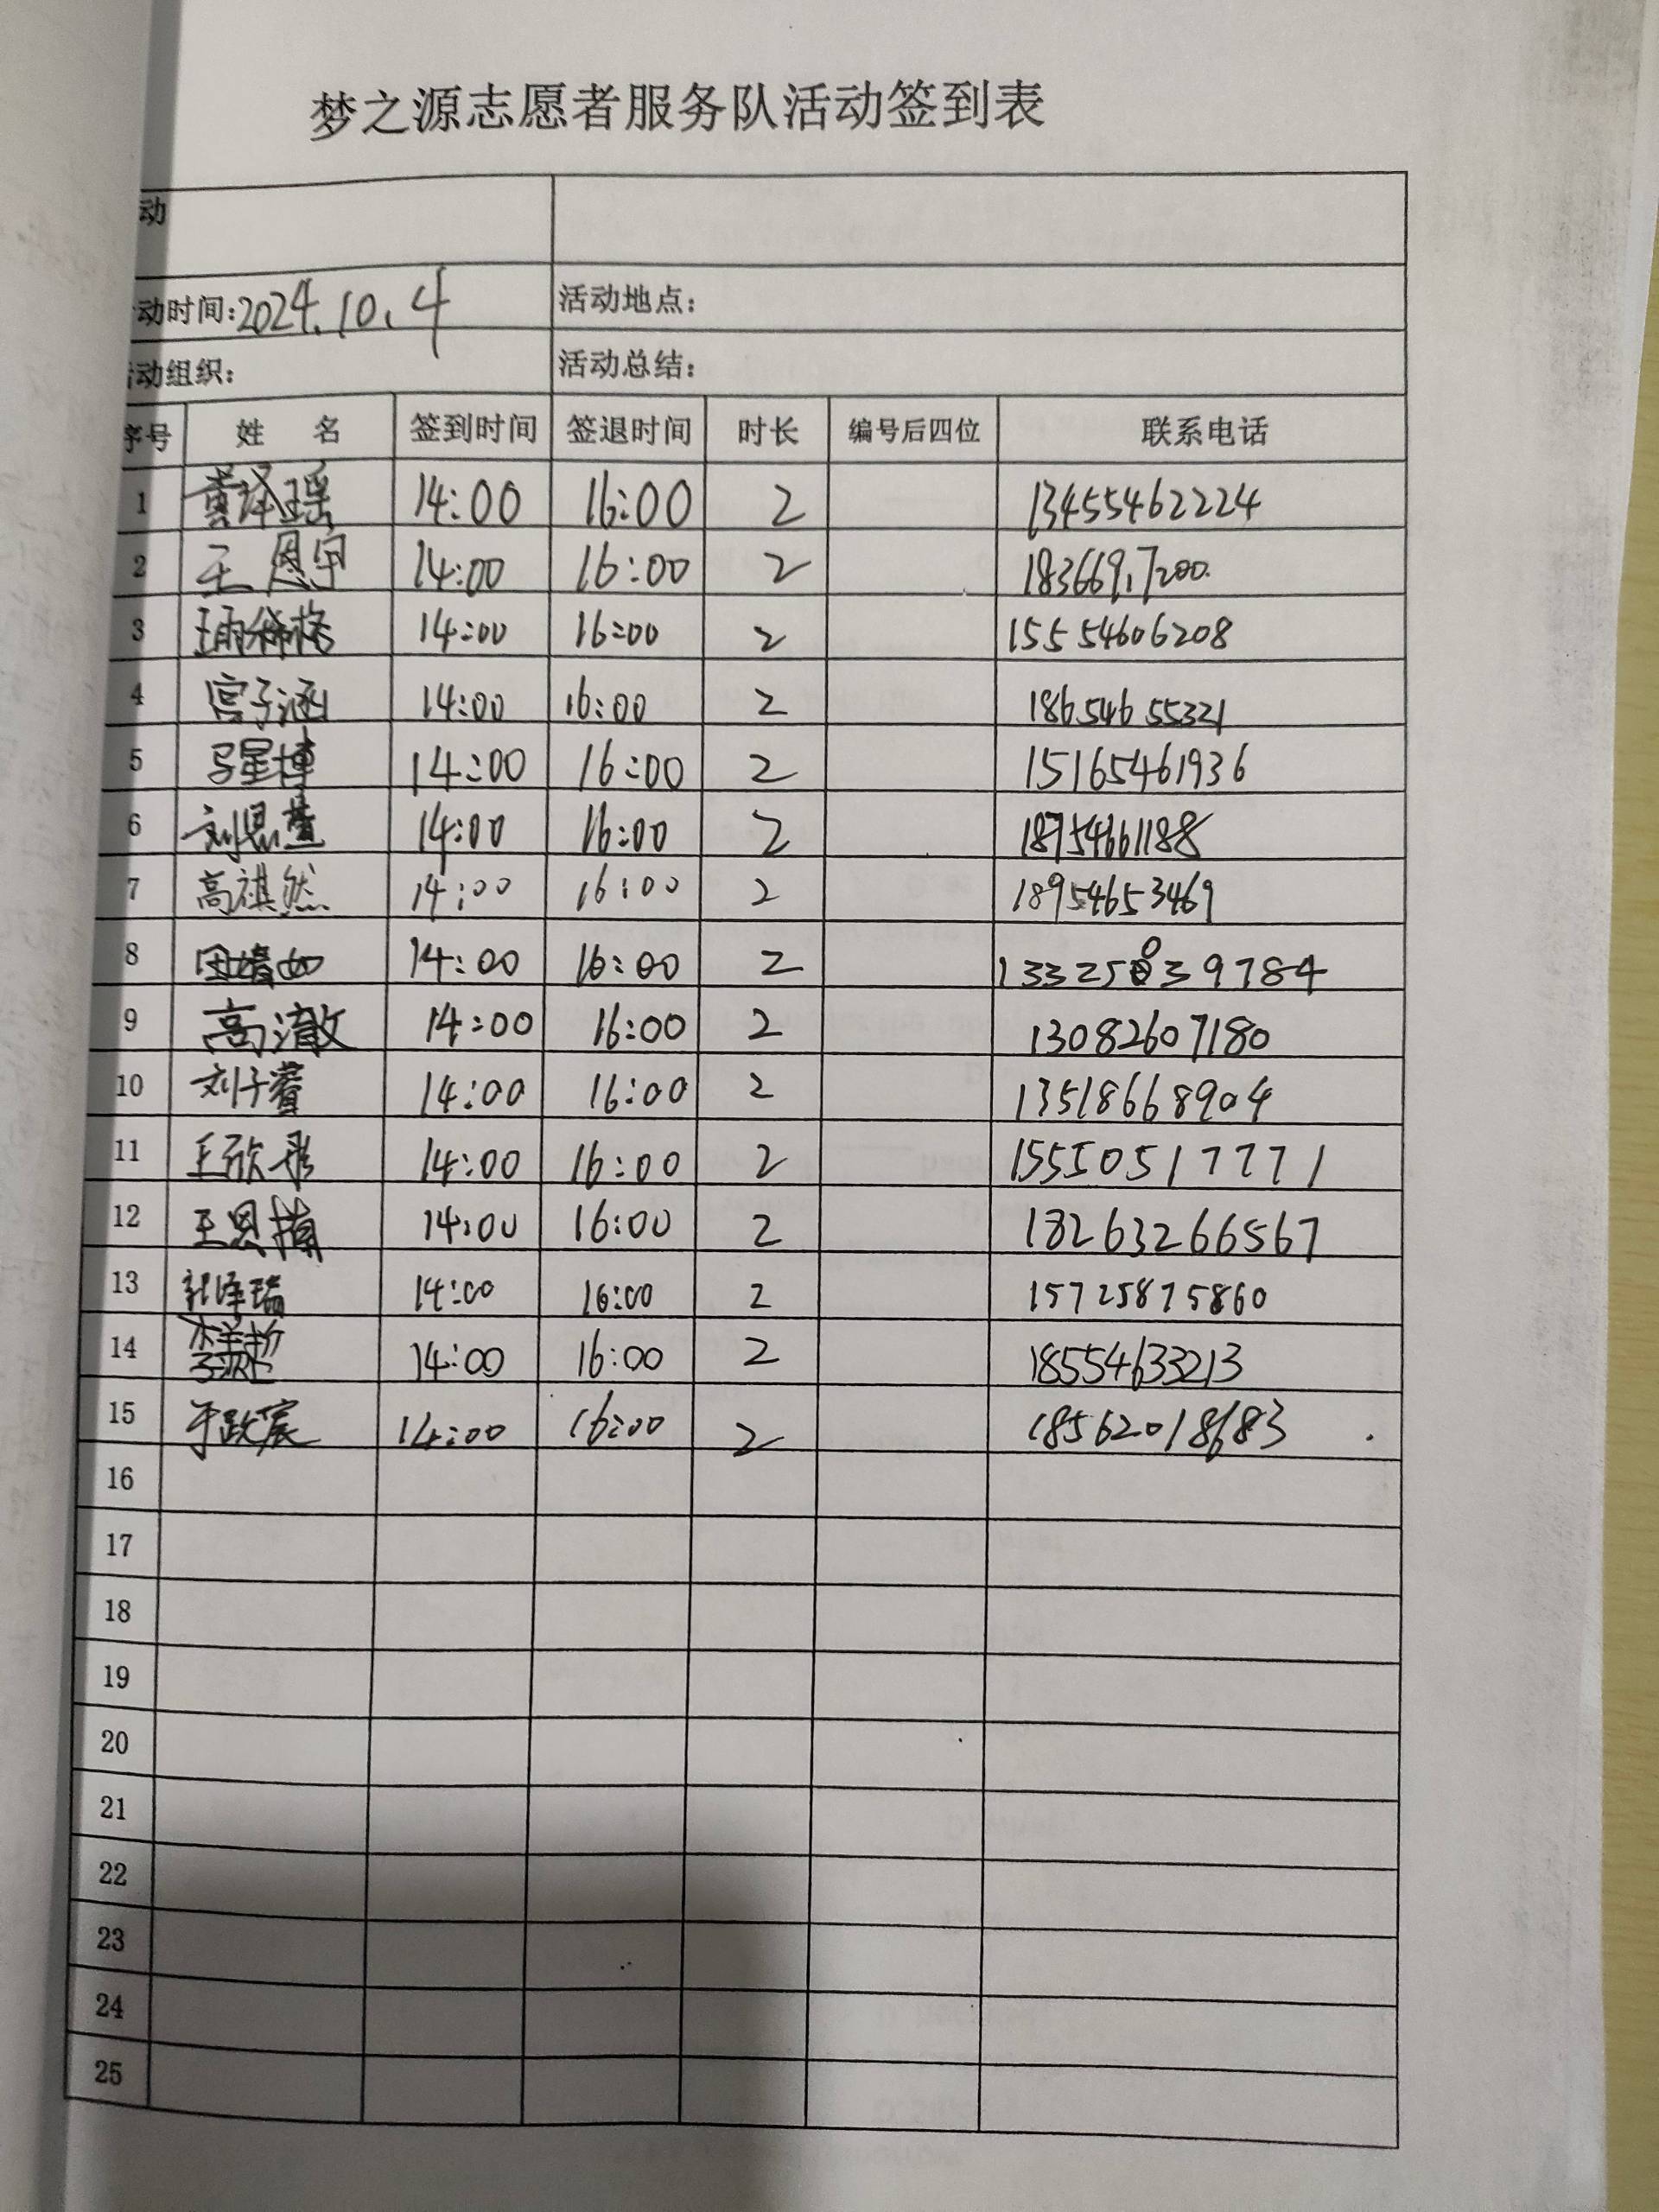 梦之源志愿者服务队活动签到表
动
动时间:2024.10.4 活动地点:
动组织: 活动总结:
序号 姓 名 签到时间 签退时间 时长 编号后四位 联系电话
1 黄泽瑶 14:00 16:00 2 13455462224
2 王恩宇 14:00 16:00 2
3 14:00 16:00 2 15554606208
4 宫子涵 14:00 16:00 2 18654655321
5 马星博 14:00 16:00 2 15165461936
6 刘恩萱 14:00 16:00 2 18754661188
7 高祺然 14:00 16:00 2 18954653469
8 田婧如 14:00 16:00 2 13325039784
9 高澈 14:00 16:00 2 13082607180
10 刘子睿 14:00 16:00 2 13518668904
11 王欣彤 14:00 16:00 2 15550517771
12 王恩楠 14:00 16:00 2 18263266567
13 14:00 16:00 2 15725875860
14 14:00 16:00 2 18554633213
15 于政宸 14:00 16:00 2 18562018683
16
17
18
19
20
21
22
23
24
25